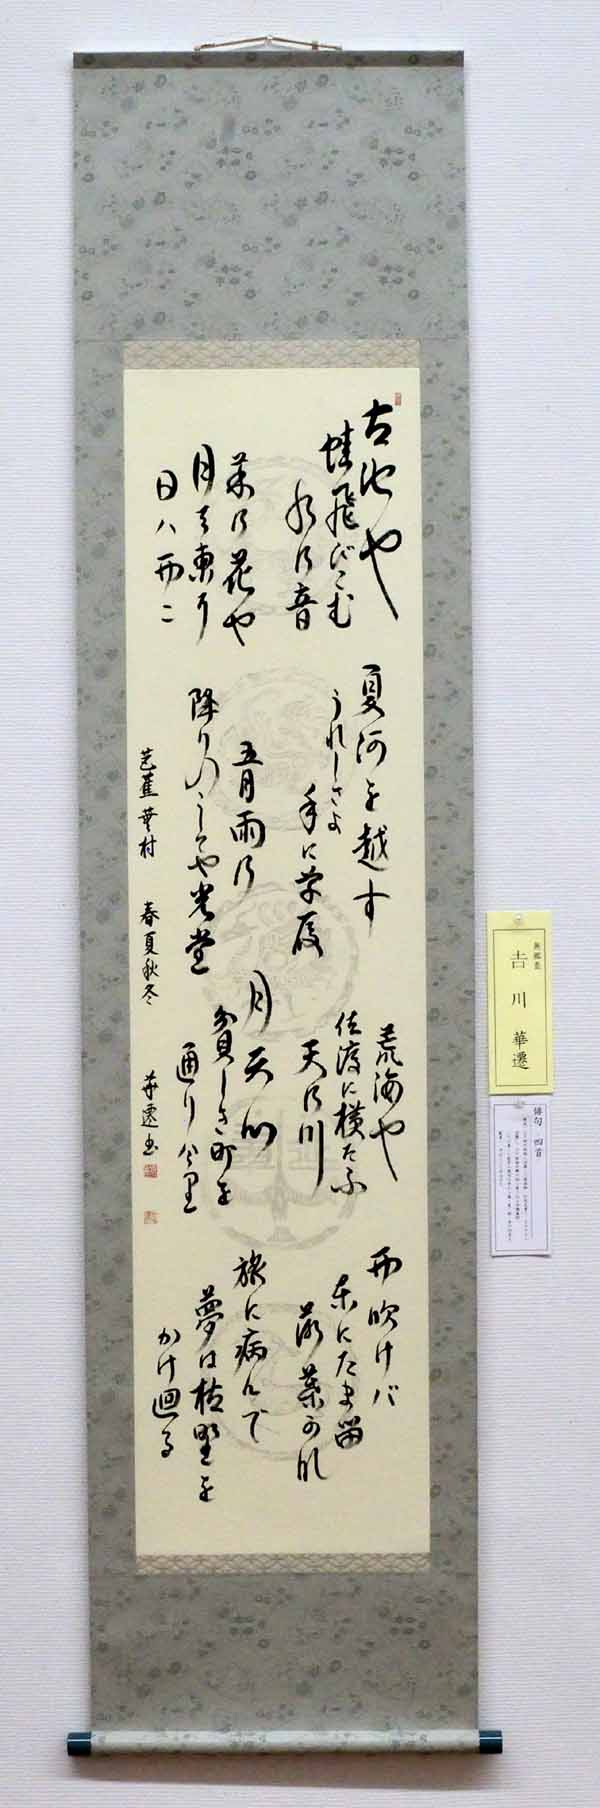 古池や
蛙飛びこむ
水乃音
菜乃花や
月は東に
日ハ西ニ
夏河を越す
うれしさよ
手に草履
五月雨乃
降りのこしてや光堂
荒海や
佐渡に横たふ
天乃川
月天心
貧しき町を
通りけり
西吹けバ
東にたま留
落葉かな
旅に病んで
夢は枯野を
かけ廻る
芭蕉 蕪村 春夏秋冬 華遷書
無鑑査
吉川 華遷
俳句 四首